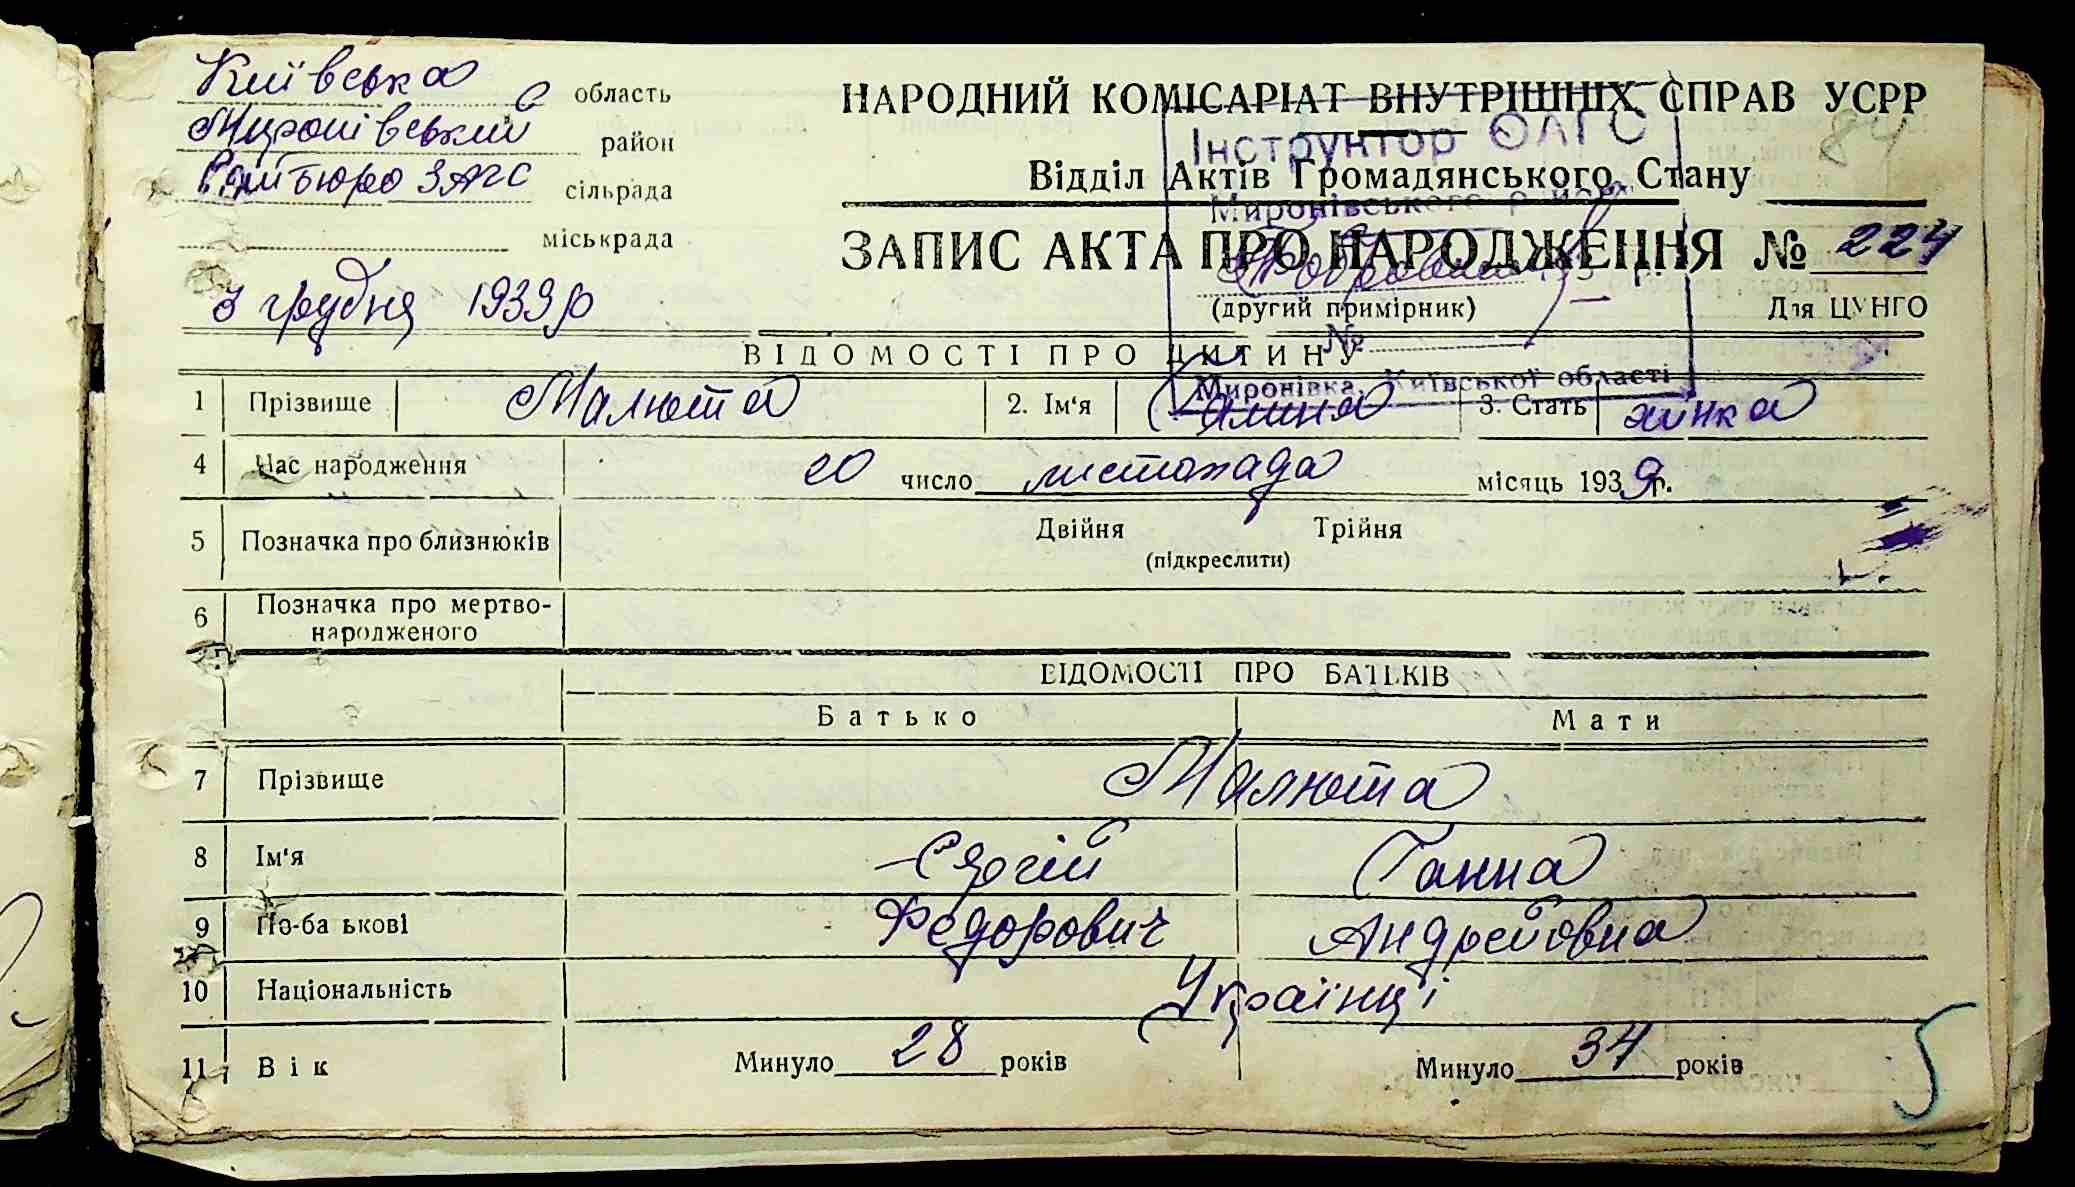 Київська область
Миронівський район
Райбюро ЗАГС сільрада
міськрада
3 грудня 1939 р
НАРОДНИЙ КОМІСАРІАТ ВНУТРІШНІХ СПРАВ УСРР
84
Інструктор ОАГС
Відділ Актів Громадянського Стану
Миронівського району
ЗАПИС АКТА ПРО НАРОДЖЕННЯ № 224
(другий примірник)
Для ЦУНГО
№
ВІДОМОСТІ ПРО ДИТИНУ
Миронівка, Київської області
1 Прізвище Малюта 2. Ім'я Галина 3. Стать жінка
4 Час народження 20 число листопада місяць 1939 р.
5 Позначка про близнюків Двійня Трійня
(підкреслити)
6 Позначка про мертво-
народженого
ВІДОМОСТІ ПРО БАТЬКІВ
Батько Мати
7 Прізвище Малюта
8 Ім'я Сергій Ганна
9 По-ба ькові Федорович Андрейовна
10 Національність Українці
11 Вік Минуло 28 років Минуло 34 років
5